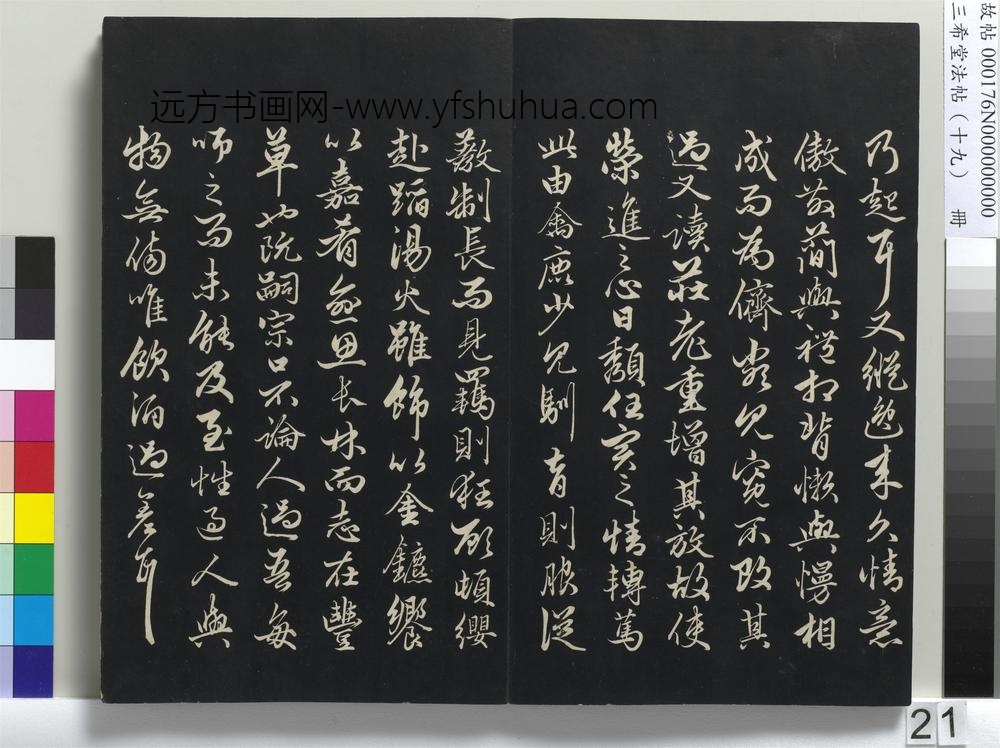 乃起耳又縱逸来久情意
傲散簡與禮相背懶與慢相
成而為儕类見寬不攻其
過又讀莊老重增其放故使
榮進之心日頹任實之情轉篤
此由禽鹿少見馴育則服從
教制長而見羈則狂顧頓纓
赴蹈湯火雖飾以金鑣饗
以嘉肴愈思長林而志在豐
草也阮嗣宗口不論人過吾每
師之而未能及至性過人與
物無傷唯飲酒過差耳
远方书画网-www.yfshuhua.com
故帖 000176N000000000
三希堂法帖（十九） 冊
21